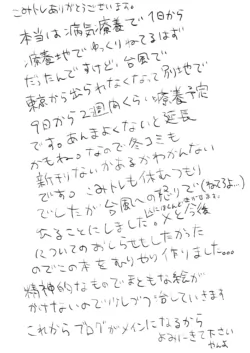 こみトレありがとうございます。
本当は病気療養で1日から
療養地でゆっくりねてるはず
だったんですけど、台風で
東京から出られなくなって別の地で
9日から2週間くらい療養予定
です。あんまよくないと延長
かもね。なので冬コミも
新刊ないかあるかわかんない
です。こみトレも休むつもり
でしたが台風への怒りで(ねてるよ…)
出ることにしました。〆と今後
についてのおしらせもしたかった
のでこの本をむりやり作りました…
精神的なものでまともな絵が
かけないので少しブログ写していきます
これからブログがメインになるから
よみにきて下さい